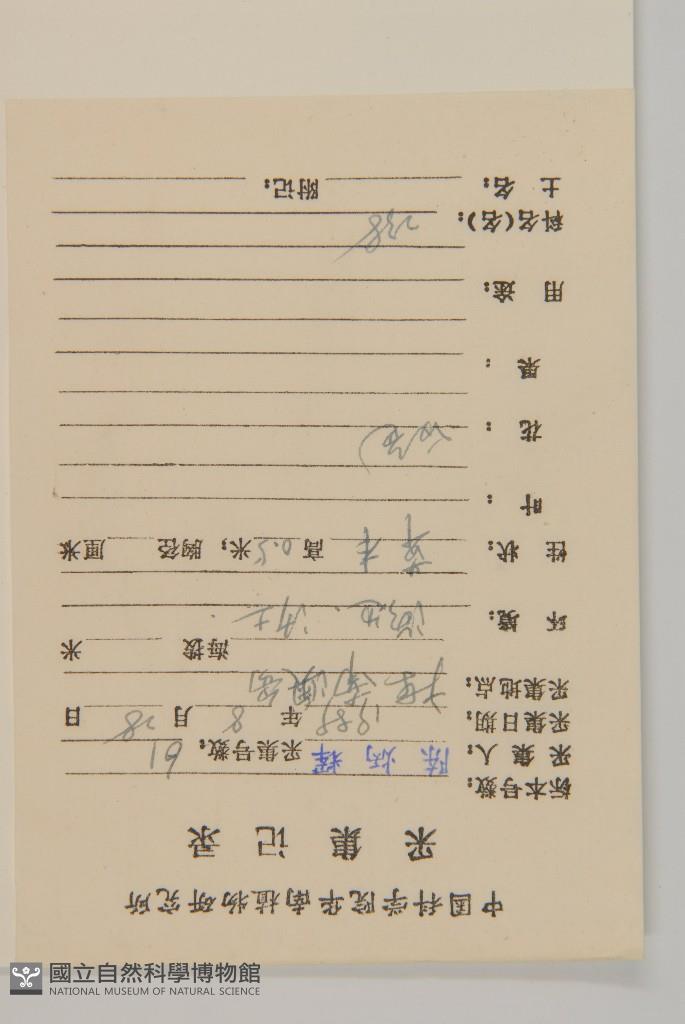 中国科学院华南植物研究所
采 集 记 录
标本号数:
采 集 人: 陈炳辉 采集号数: 61
采集日期: 1988 年 8 月 28 日
采集地点:
海拔 米
环 境: 海边、沙土
性 状: 草本 高 0.5 米; 胸径 厘米
叶 :
花 : 白色
果 :
用 途:
科名(名): 238
土 名: 附记:
國立自然科學博物館
NATIONAL MUSEUM OF NATURAL SCIENCE